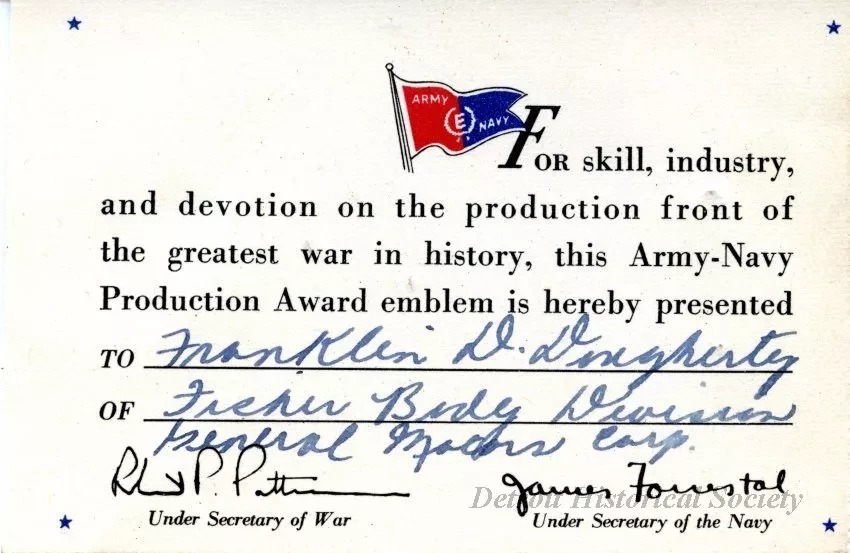 ARMY E NAVY
FOR skill, industry,
and devotion on the production front of
the greatest war in history, this Army-Navy
Production Award emblem is hereby presented
TO Franklin D. Dougherty
OF Fisher Body Division
General Motors Corp.
Robert P. Patterson James Forrestal
Detroit Historical Society
Under Secretary of War Under Secretary of the Navy